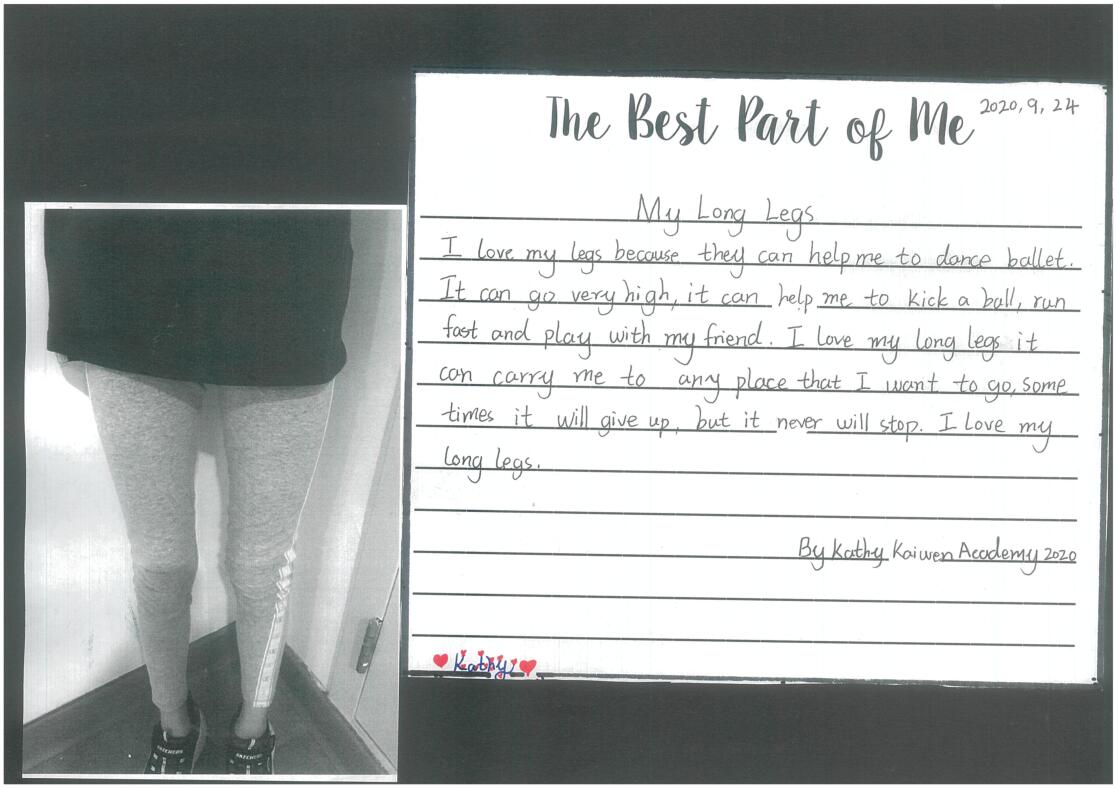 The Best Part of Me
2020, 9, 24
My Long Legs
I love my legs because they can help me to dance ballet.
It can go very high, it can help me to kick a ball, run
fast and play with my friend. I love my long legs it
can carry me to any place that I want to go, some
times it will give up, but it never will stop. I Love my
long legs.
By Kathy Kaiwen Academy 2020
♥ Kathy ♥
SKECHERS
SKECHERS